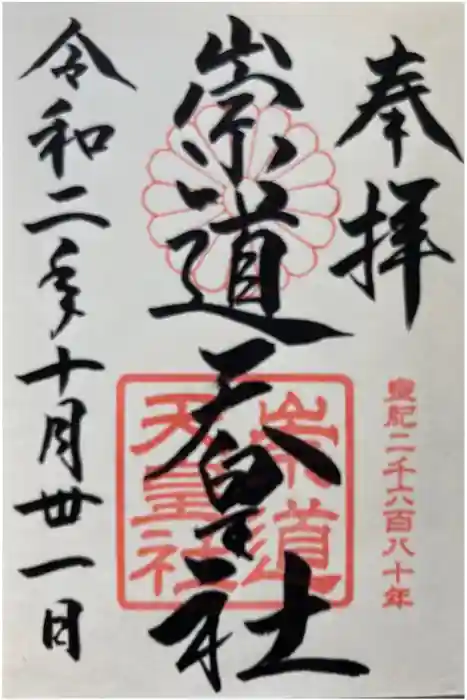 奉拝
皇紀二千六百八十年
崇道天皇社
崇道
天皇社
令和二年十月卅一日